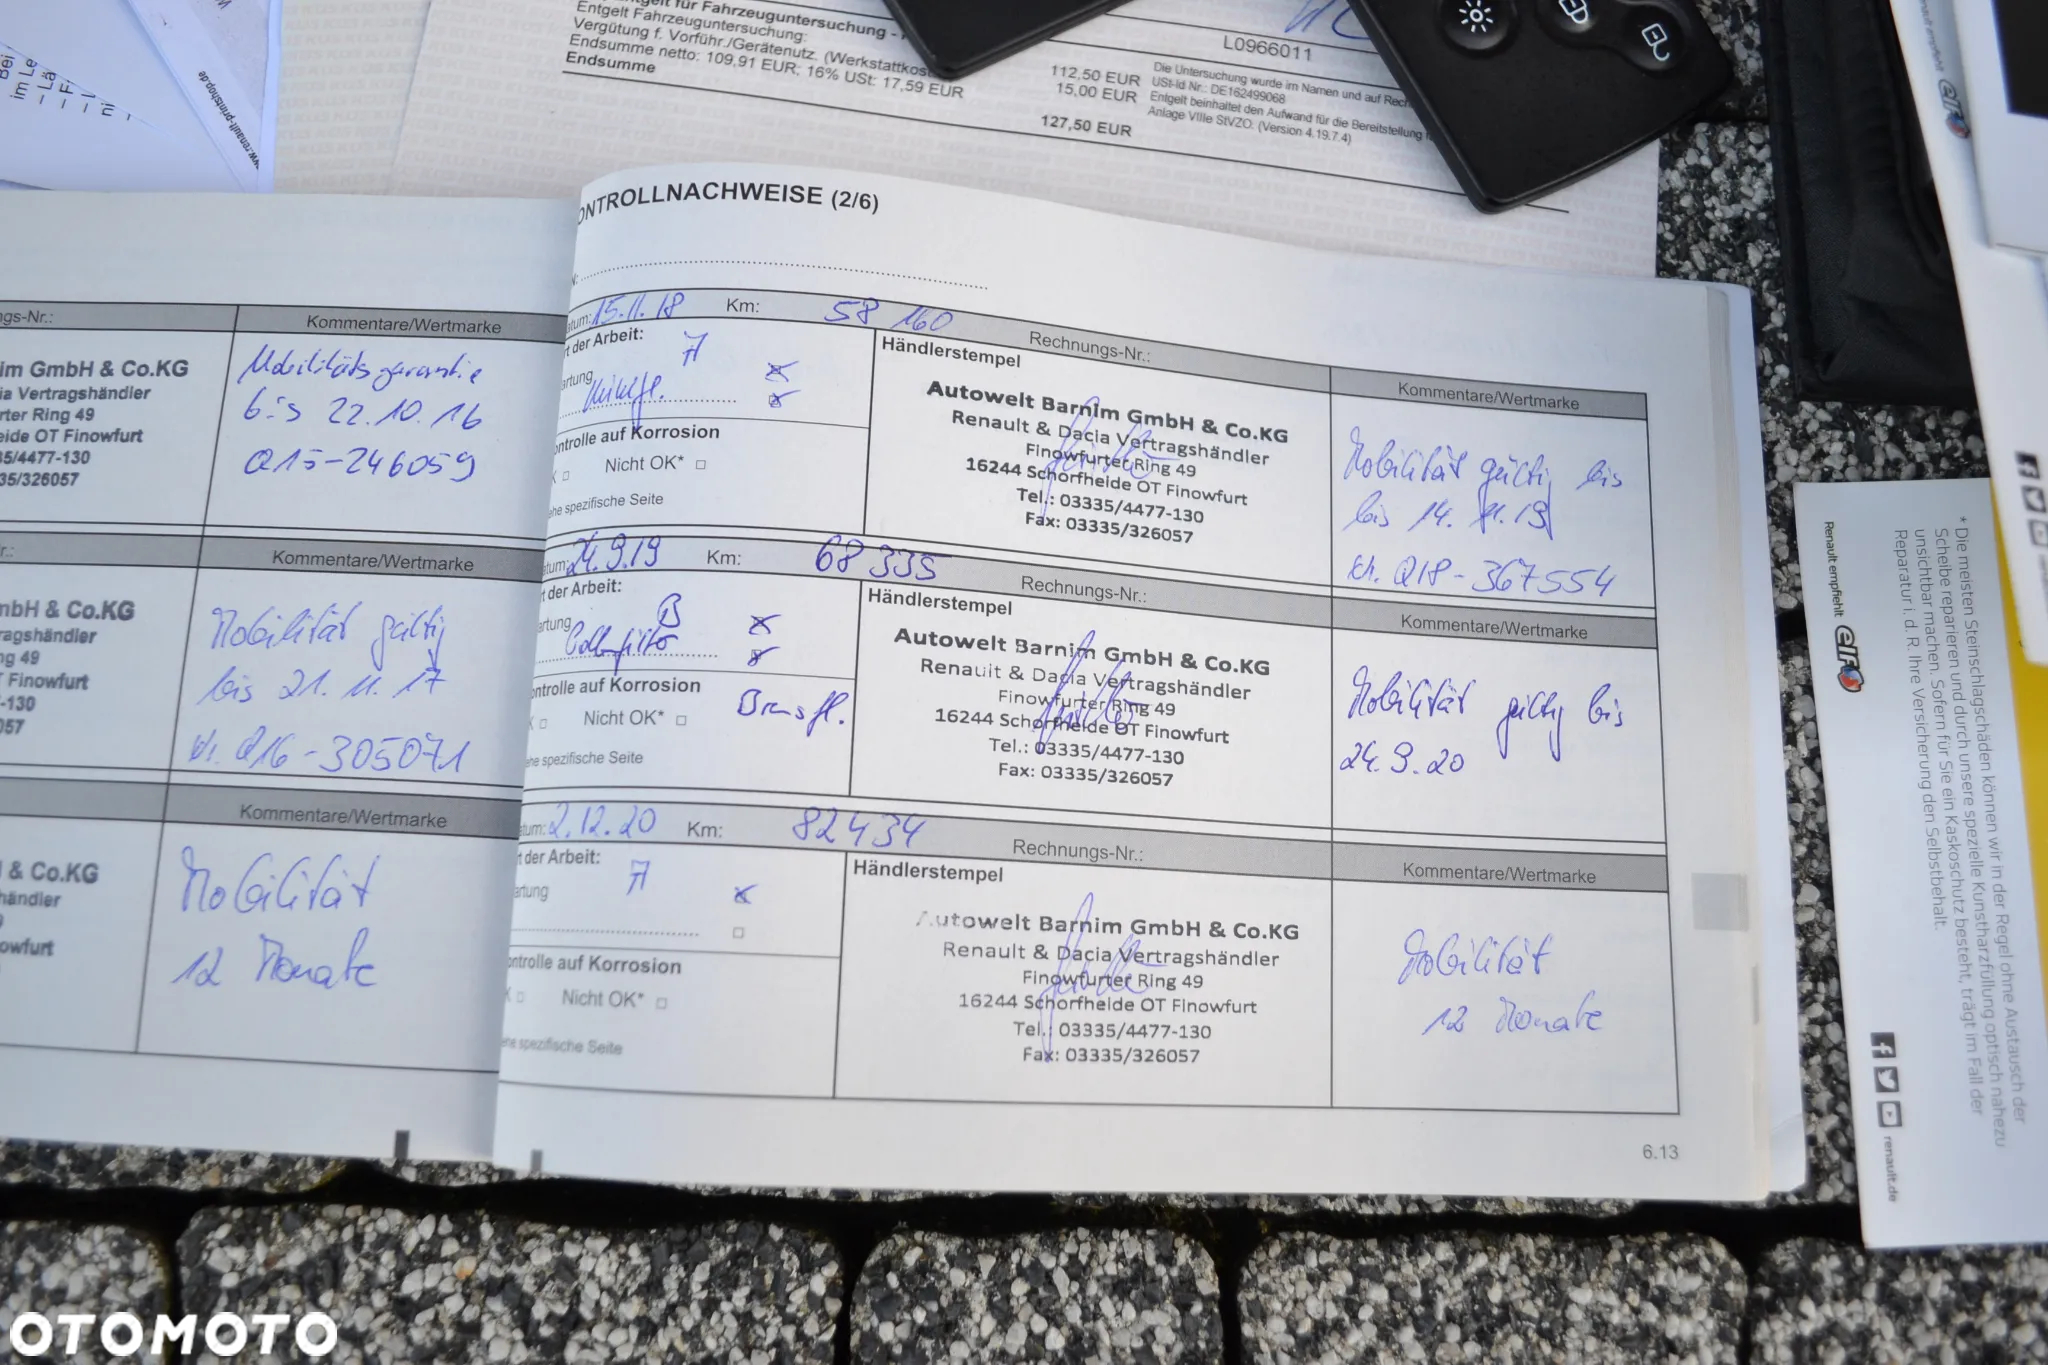 Entgelt für Fahrzeuguntersuchung -
Entgelt Fahrzeuguntersuchung:
Vergütung f. Vorführ./Gerätenutz. (Werkstattkost
Endsumme netto: 109,91 EUR; 16% USt: 17,59 EUR
Endsumme
112,50 EUR
15,00 EUR
127,50 EUR
L0966011
Die Untersuchung wurde im Namen und auf Rech
USt-Id Nr.: DE162499068
Entgelt beinhaltet den Aufwand für die Bereitstellung
Anlage VIIIe StVZO. (Version 4.19.7.4)
Bei
im Le
– Lä
www.renault-printshop.de
ngs-Nr.:
Kommentare/Wertmarke
im GmbH & Co.KG
ia Vertragshändler
rter Ring 49
eide OT Finowfurt
35/4477-130
35/326057
Mobilitätsgarantie
bis 22.10.16
Q15-246059
r.:
Kommentare/Wertmarke
mbH & Co.KG
ragshändler
ng 49
T Finowfurt
-130
057
Mobilität gültig
bis 21.11.17
Q16-305071
Kommentare/Wertmarke
H & Co.KG
händler
owfurt
Mobilität
12 Monate
ONTROLLNACHWEISE (2/6)
N:
atum: 15.11.18 Km: 58 160 Rechnungs-Nr.:
Kommentare/Wertmarke
t der Arbeit: A
artung
ontrolle auf Korrosion
K Nicht OK*
ehe spezifische Seite
Händlerstempel
Autowelt Barnim GmbH & Co.KG
Renault & Dacia Vertragshändler
Finowfurter Ring 49
16244 Schorfheide OT Finowfurt
Tel.: 03335/4477-130
Fax: 03335/326057
Mobilität gültig bis
bis 14.11.19
Q18-367554
atum: 24.9.19 Km: 68 335 Rechnungs-Nr.:
Kommentare/Wertmarke
t der Arbeit: B
artung
Pollenfilter
ontrolle auf Korrosion
Bremsfl.
K Nicht OK*
ehe spezifische Seite
Händlerstempel
Autowelt Barnim GmbH & Co.KG
Renault & Dacia Vertragshändler
Finowfurter Ring 49
16244 Schorfheide OT Finowfurt
Tel.: 03335/4477-130
Fax: 03335/326057
Mobilität gültig bis
24.9.20
atum: 2.12.20 Km: 82434 Rechnungs-Nr.:
Kommentare/Wertmarke
t der Arbeit: A
artung
ontrolle auf Korrosion
K Nicht OK*
ehe spezifische Seite
Händlerstempel
Autowelt Barnim GmbH & Co.KG
Renault & Dacia Vertragshändler
Finowfurter Ring 49
16244 Schorfheide OT Finowfurt
Tel.: 03335/4477-130
Fax: 03335/326057
Mobilität
12 Monate
6.13
Renault empfiehlt elf
* Die meisten Steinschlagschäden können wir in der Regel ohne Austausch der
Scheibe reparieren und durch unsere spezielle Kunstharzfüllung optisch nahezu
unsichtbar machen. Sofern für Sie ein Kaskoschutz besteht, trägt im Fall der
Reparatur i. d. R. Ihre Versicherung den Selbstbehalt.
renault.de
Renault empfiehlt elf
OTOMOTO